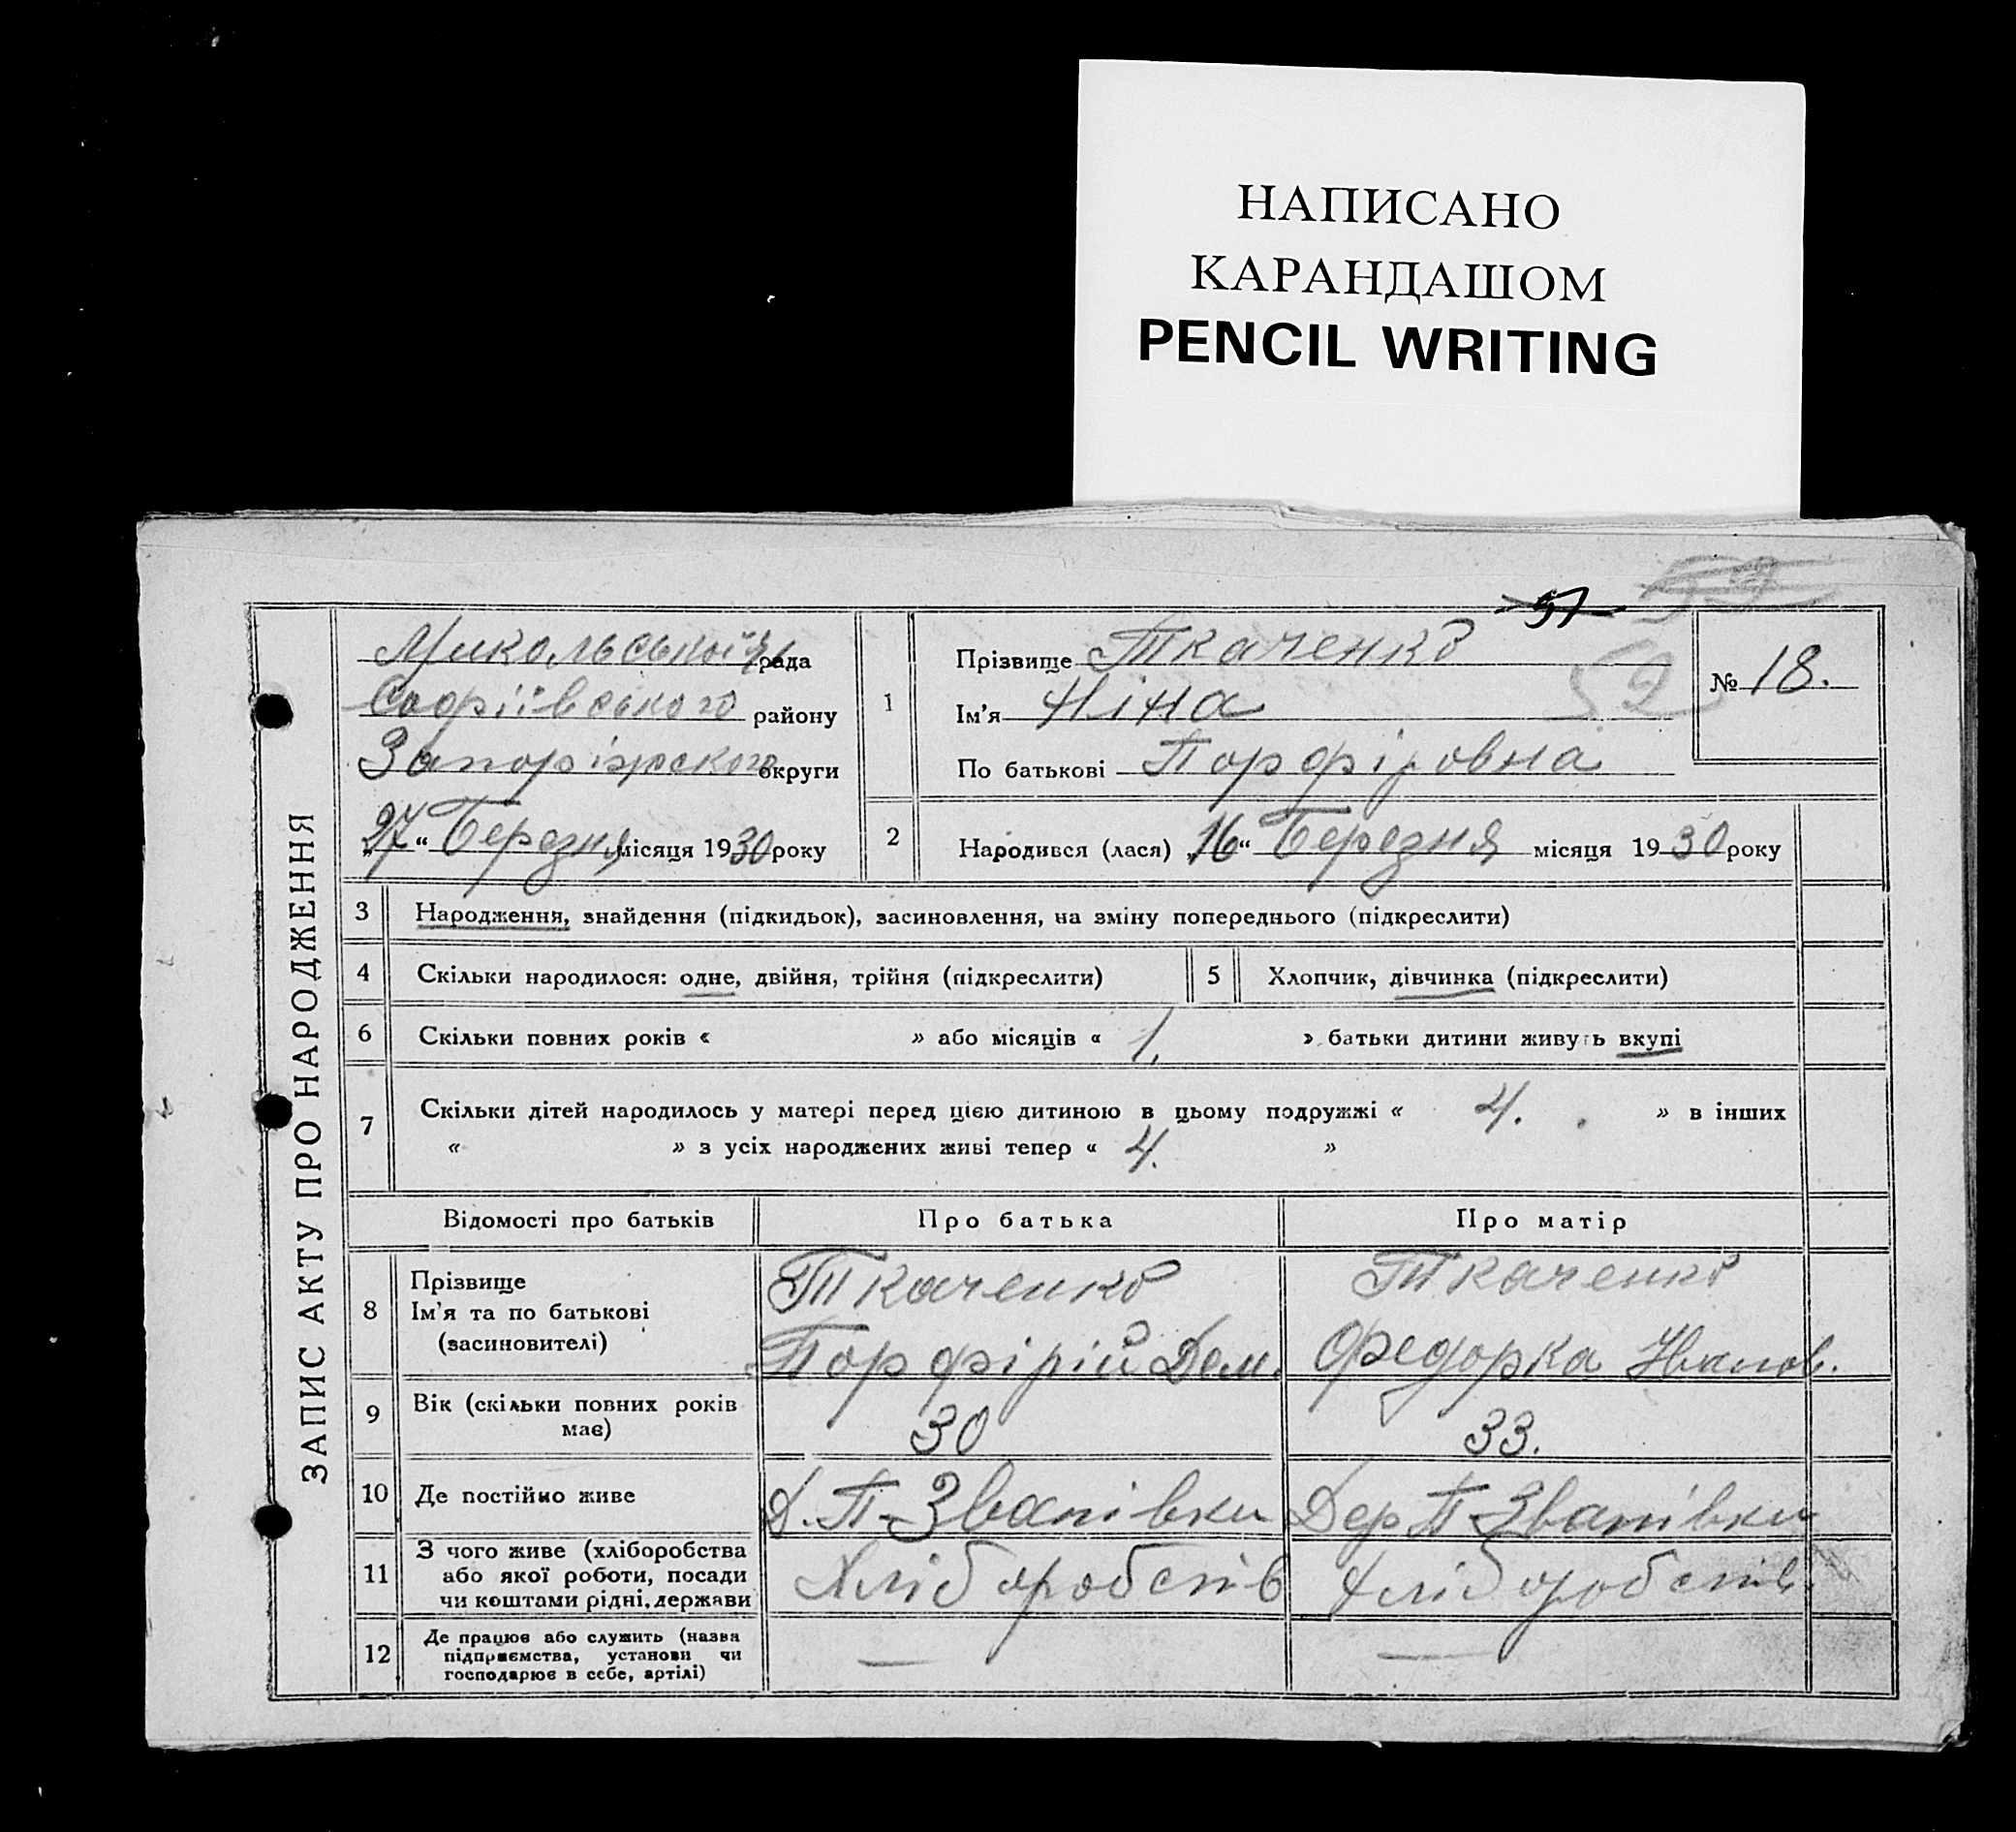 НАПИСАНО
КАРАНДАШОМ
PENCIL WRITING
ЗАПИС АКТУ ПРО НАРОДЖЕННЯ
Микольської рада
Софіївського району
Запоріжского округи
„27“ Березня місяця 1930 року
57
52
№ 18.
1 Прізвище Ткаченко
Ім’я Ніна
По батькові Порфіровна
2 Народився (лася) „16“ Березня місяця 1930 року
3 Народження, знайдення (підкидьок), засиновлення, на зміну попереднього (підкреслити)
4 Скільки народилося: одне, двійня, трійня (підкреслити) 5 Хлопчик, дівчинка (підкреслити)
6 Скільки повних років « » або місяців « 1. » батьки дитини живуть вкупі
7 Скільки дітей народилось у матері перед цією дитиною в цьому подружжі « 4. » в інших
« » з усіх народжених живі тепер « 4. »
Відомості про батьків Про батька Про матір
8 Прізвище Ткаченко Ткаченко
Ім’я та по батькові Порфірій Дем. Федорка Іванов.
(засиновителі)
9 Вік (скільки повних років має) 30 33.
10 Де постійно живе Д. П-Званівки Дер П-Званівки
11 З чого живе (хліборобства Хліборобств Хліборобств.
або якої роботи, посади
чи коштами рідні, держави
12 Де працює або служить (назва — —
підприємства, установи чи
господарює в себе, артілі)